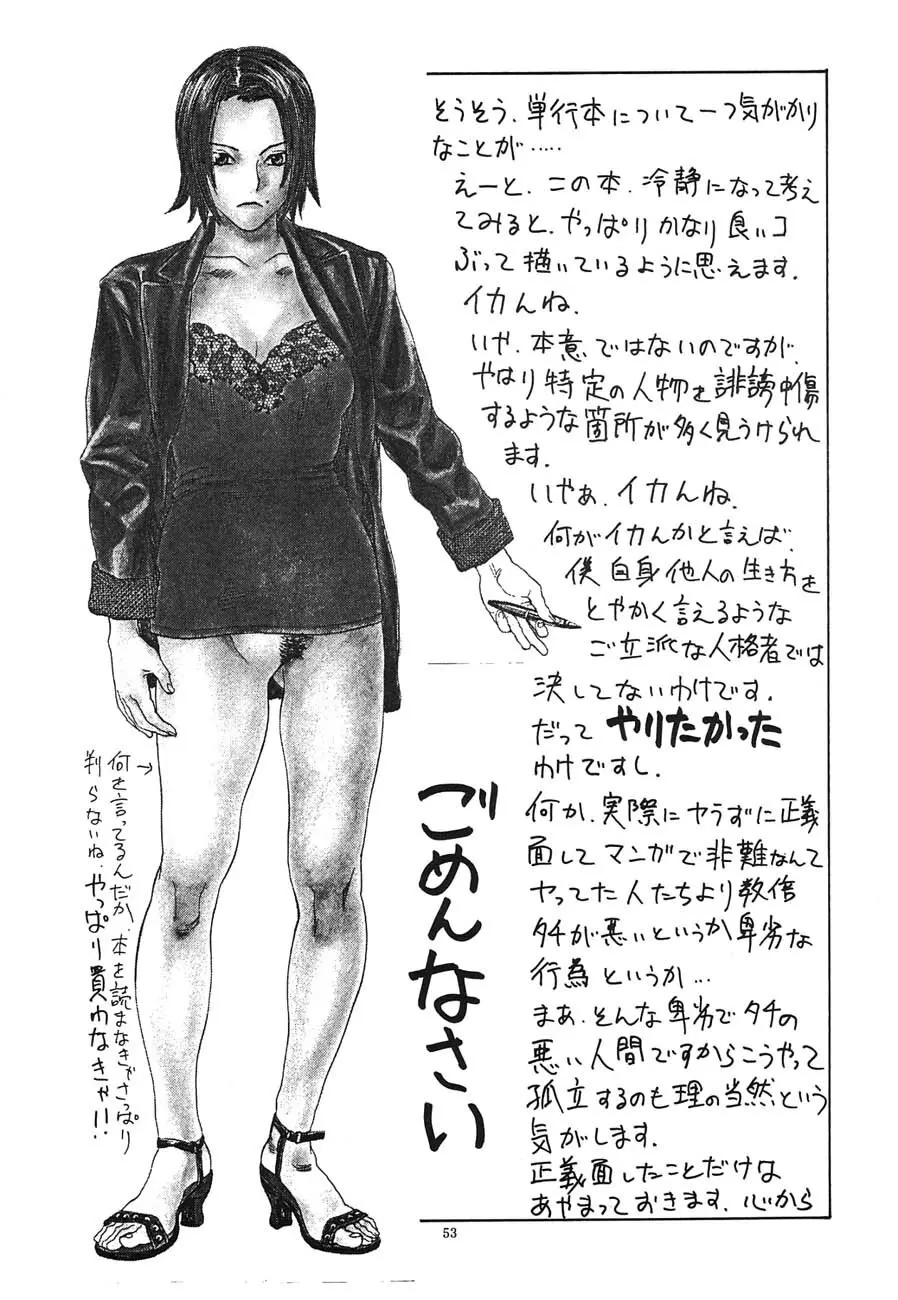 そうそう、単行本について一つ気がかり
なことが……
えーと、この本、冷静になって考え
てみると、やっぱりかなり良いコ
ぶって描いているように思えます。
イカんね。
いや、本意ではないのですが、
やはり特定の人物を誹謗中傷
するような箇所が多く見うけられ
ます。
いやぁ、イカんね。
何がイカんかと言えば、
僕自身他人の生き方を
とやかく言えるような
ご立派な人格者では
決してないわけです。
だって やりたかった
わけですし。
何か、実際にヤらずに正義
面してマンガで非難なんて
ヤってた人たちより数倍
タチが悪いというか卑劣な
行為というか…
まあ、そんな卑劣でタチの
悪い人間ですからこうやって
孤立するのも理の当然という
気がします。
正義面したことだけは
あやまっておきます、心から
ごめんなさい
→何を言ってるんだか、本を読まなきゃさっぱり
判らないね、やっぱり買わなきゃ!!
53